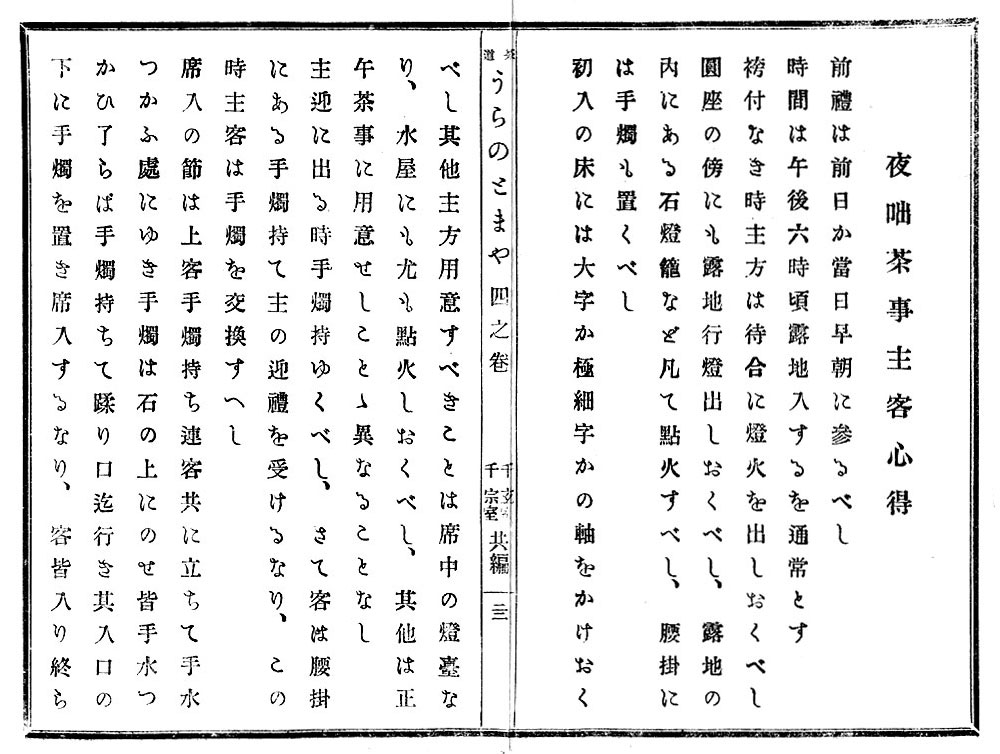 夜咄茶事主客心得
前禮は前日か當日早朝に參るべし
時間は午後六時頃露地入するを通常とす
袴付なき時主方は待合に燈火を出しおくべし
圓座の傍にも露地行燈出しおくべし、露地の
內にある石燈籠など凡て點火すべし、腰掛に
は手燭も置くべし
初入の床には大字か極細字かの軸をかけおく
茶道 うらのとまや 四之卷 千宗室 共編 二三
べし其他主方用意すべきことは席中の燈臺な
り、水屋にも尤も點火しおくべし、其他は正
午茶事に用意せしことゝ異なることなし
主迎に出る時手燭持ゆくべし、さて客は腰掛
にある手燭持て主の迎禮を受けるなり、この
時主客は手燭を交換すへし
席入の節は上客手燭持ち連客共に立ちて手水
つかふ處にゆき手燭は石の上にのせ皆手水つ
かひ了らば手燭持ちて蹂り口迄行き其入口の
下に手燭を置き席入するなり、客皆入り終ら